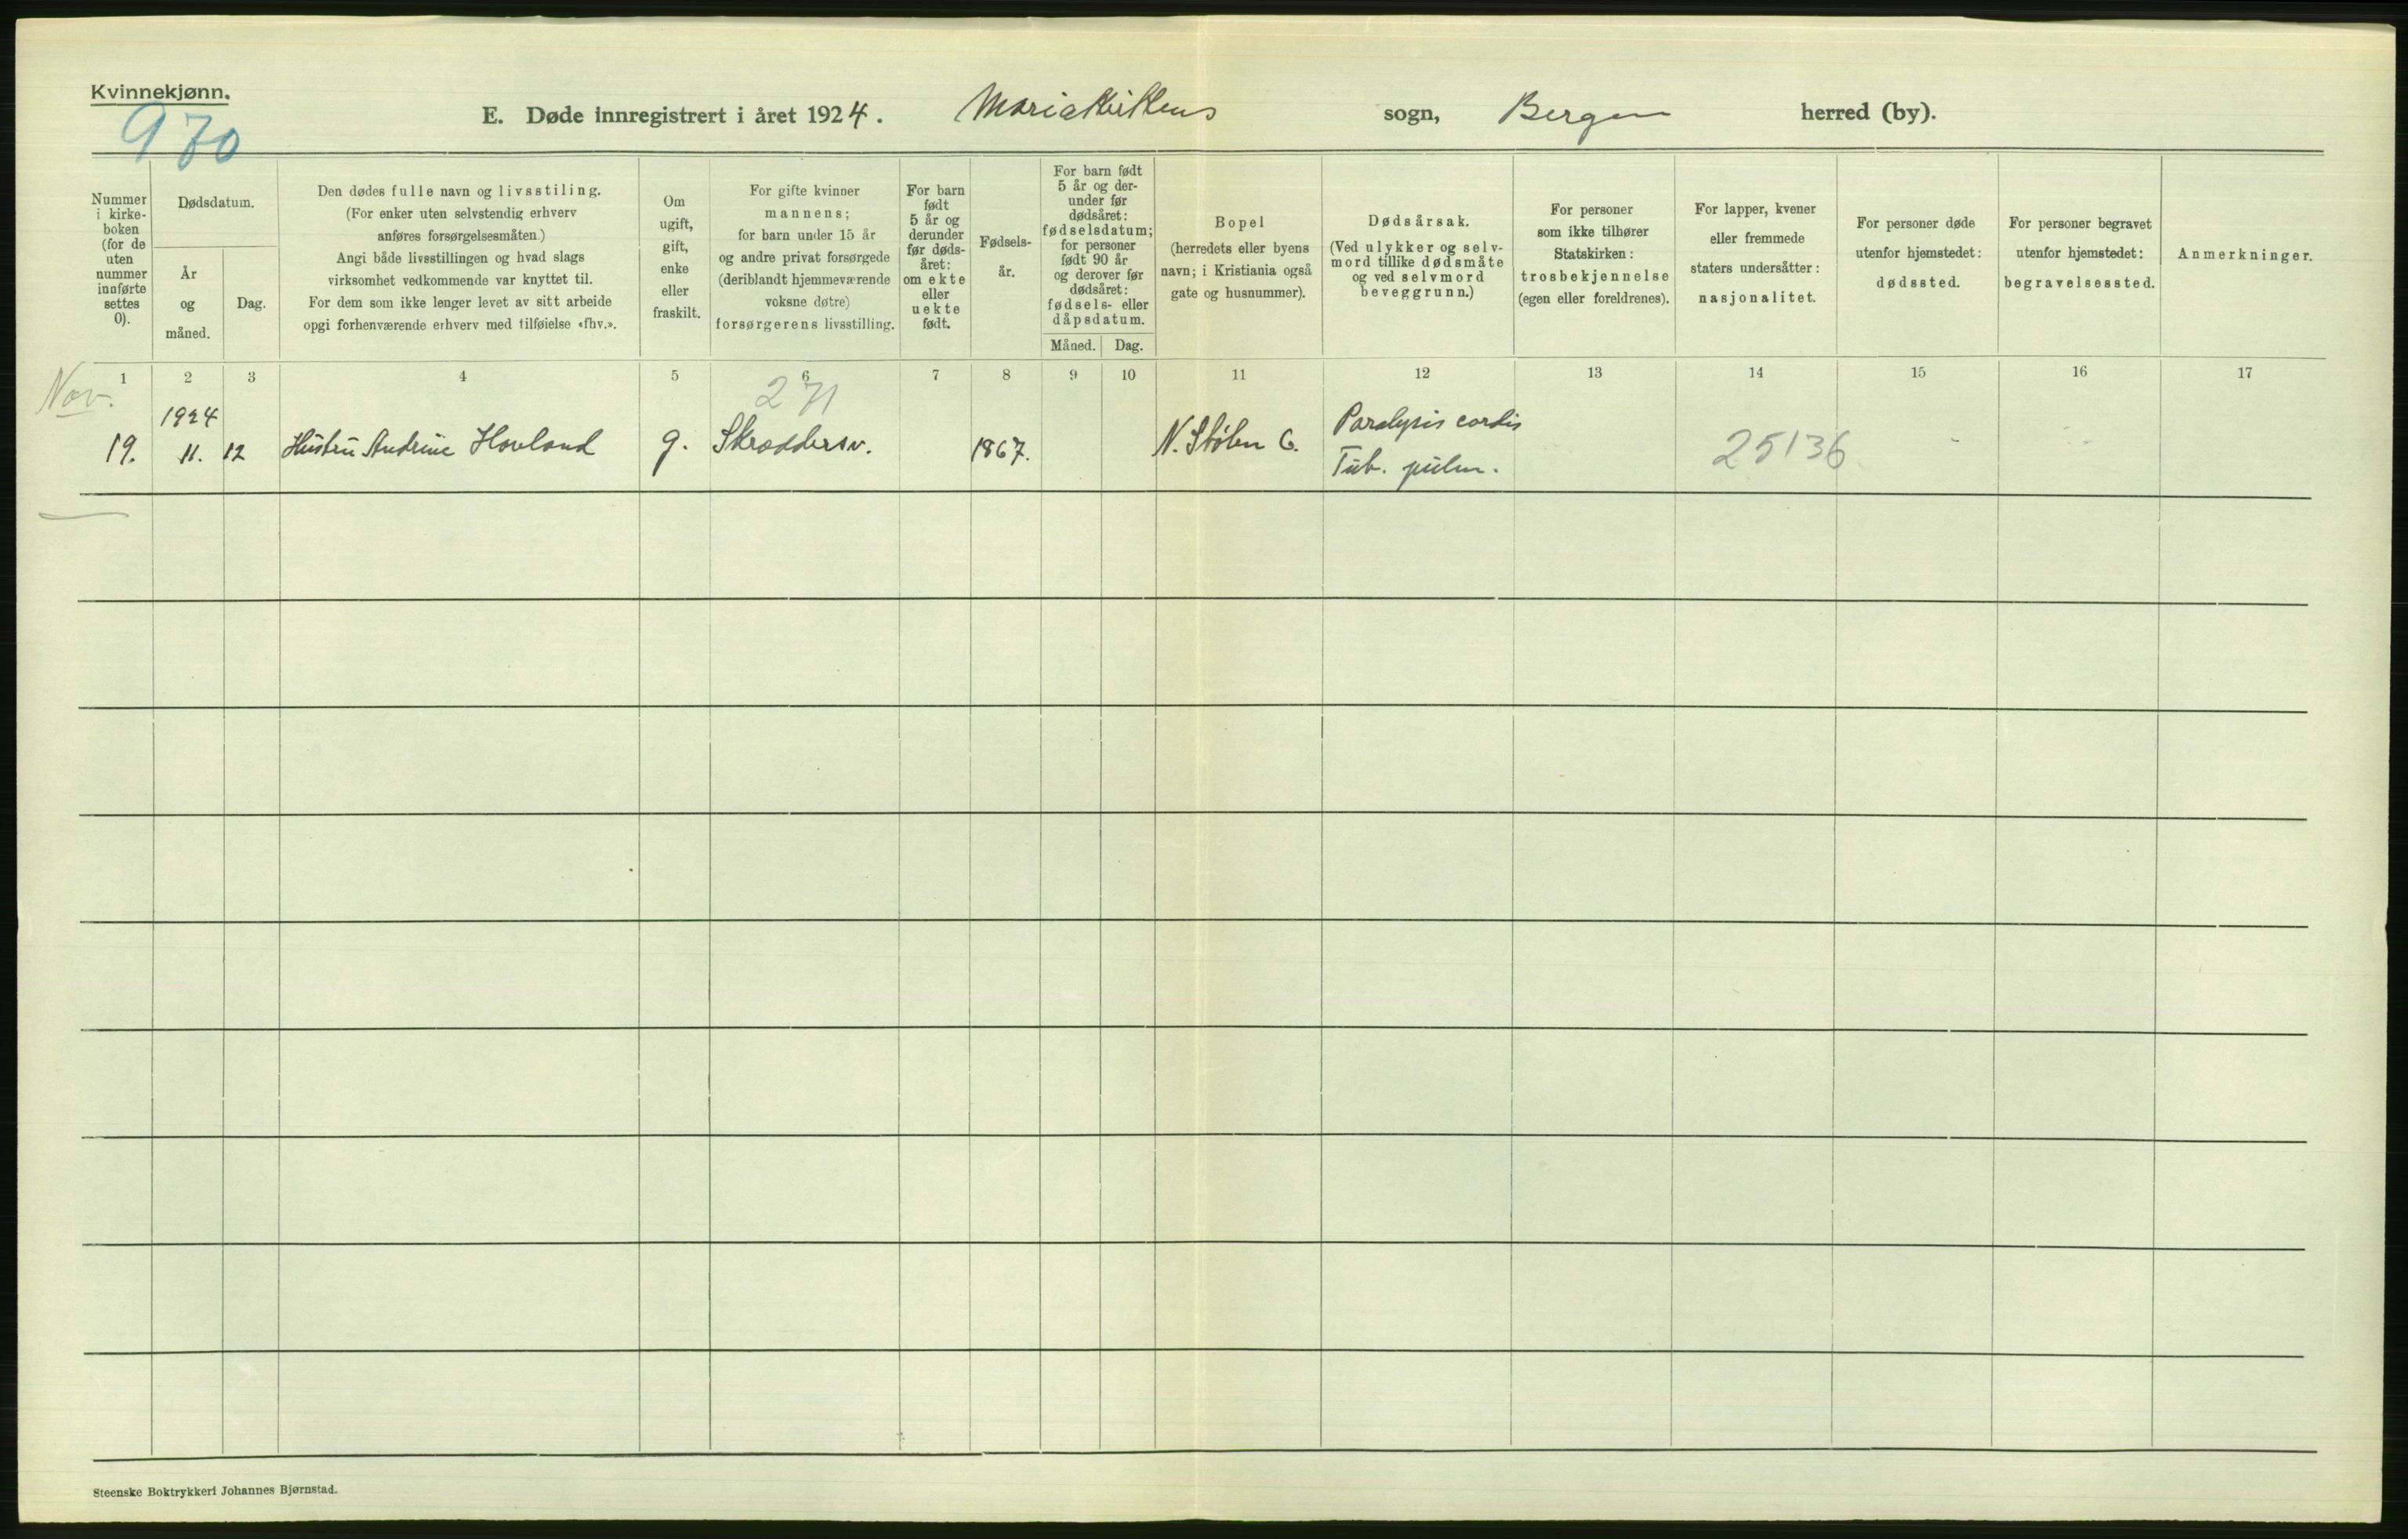 Kvinnekjønn.
970
E. Døde innregistrert i året 1924. Mariakirkens sogn, Bergen herred (by).
Nummer
i kirke-
boken
(for de
uten
nummer
innførte
settes
0).
Dødsdatum.
År
og
måned.
Dag.
Den dødes fulle navn og livsstiling.
(For enker uten selvstendig erhverv
anføres forsørgelsesmåten.)
Angi både livsstillingen og hvad slags
virksomhet vedkommende var knyttet til.
For dem som ikke lenger levet av sitt arbeide
opgi forhenværende erhverv med tilføielse «fhv.».
Om
ugift,
gift,
enke
eller
fraskilt.
For gifte kvinner
mannens;
for barn under 15 år
og andre privat forsørgede
(deriblandt hjemmeværende
voksne døtre)
forsørgerens livsstilling.
For barn
født
5 år og
derunder
før døds-
året:
om ekte
eller
uekte
født.
Fødsels-
år.
For barn født
5 år og der-
under før
dødsåret:
fødselsdatum;
for personer
født 90 år
og derover før
dødsåret:
fødsels- eller
dåpsdatum.
Måned. Dag.
Bopel
(herredets eller byens
navn; i Kristiania også
gate og husnummer).
Dødsårsak.
(Ved ulykker og selv-
mord tillike dødsmåte
og ved selvmord
beveggrunn.)
For personer
som ikke tilhører
Statskirken:
trosbekjennelse
(egen eller foreldrenes).
For lapper, kvener
eller fremmede
staters undersåtter:
nasjonalitet.
For personer døde
utenfor hjemstedet:
dødssted.
For personer begravet
utenfor hjemstedet:
begravelsessted.
Anmerkninger.
1 2 3 4 5 6 7 8 9 10 11 12 13 14 15 16 17
Nov.
271
1924
19. 11. 12 Hustru Andrine Hovland g. Skræddersv. 1867. N. Stølen 6. Paralysis cordis
Tub. pulm.
25136
Steenske Boktrykkeri Johannes Bjørnstad.